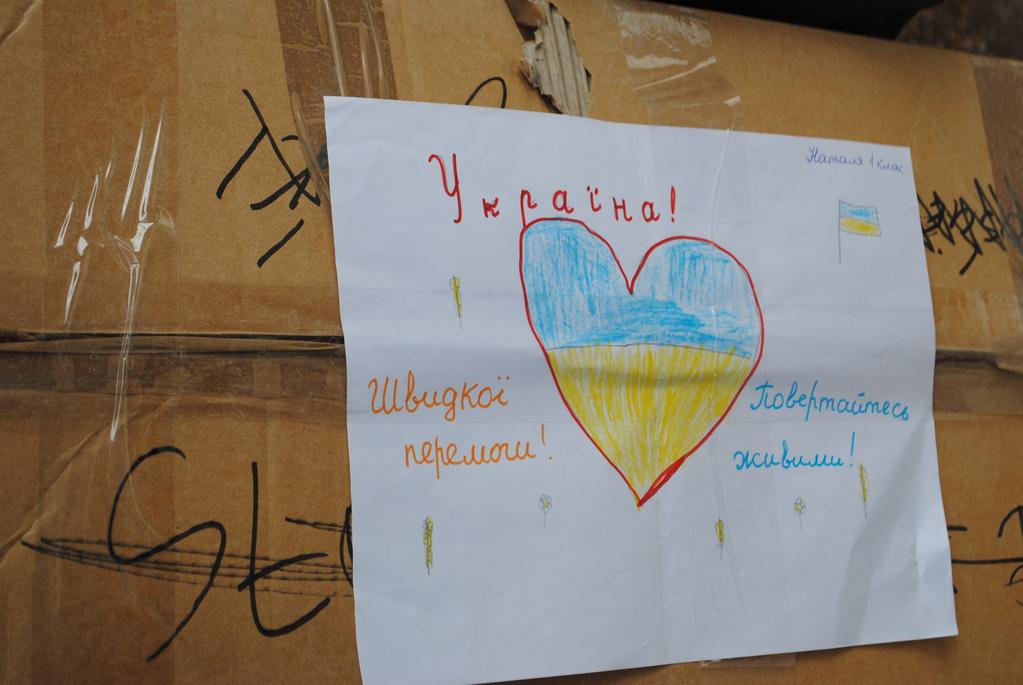 Наталя 1 клас
Україна!
Швидкої
перемоги!
Повертайтесь
живими!